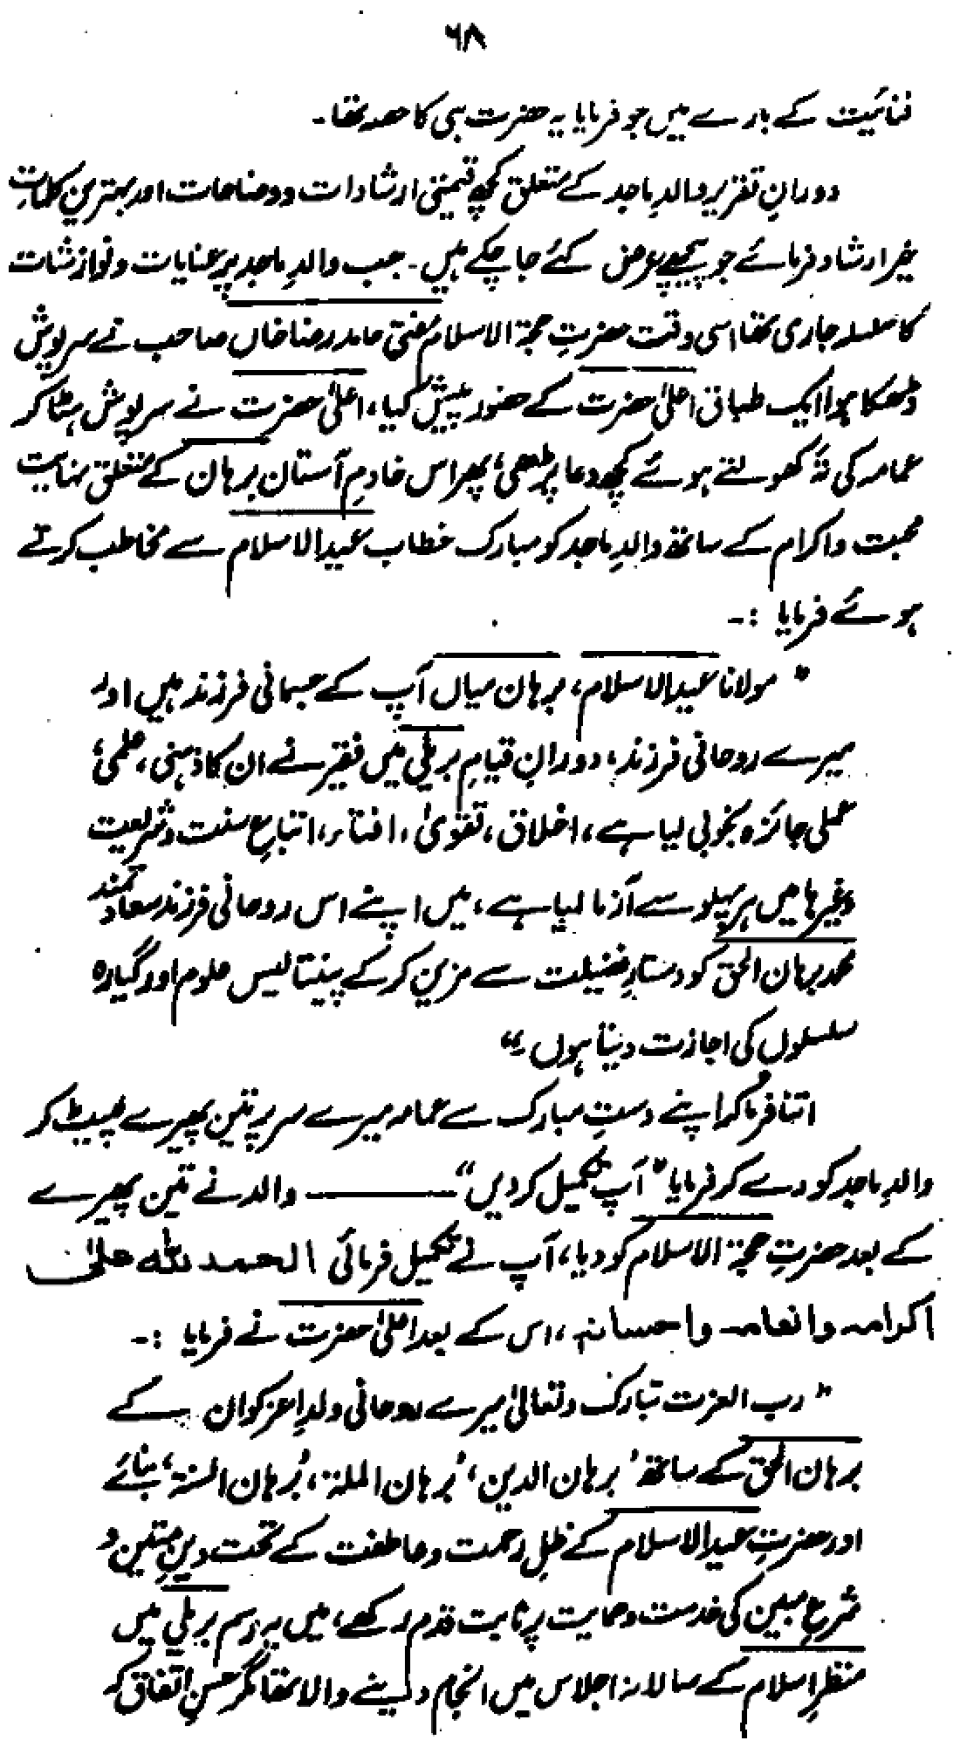 ۶۸
فنائیت کے بارے میں جو فرمایا یہ حضرت ہی کا حصہ تھا۔
دورانِ تقریر والدِ ماجد کے متعلق کچھ قیمتی ارشادات و وضاحات اور بہترین کلماتِ
خیر ارشاد فرمائے جو پیچھے عرض کئے جا چکے ہیں۔ جب والدِ ماجد پر عنایات و نوازشات
کا سلسلہ جاری تھا اسی وقت حضرتِ حجۃ الاسلام مفتی حامد رضا خاں صاحب نے سرپوش
ڈھکا ہوا ایک طباق اعلیٰ حضرت کے حضور پیش کیا، اعلیٰ حضرت نے سرپوش ہٹا کر
عمامہ کی تہ کھولتے ہوئے کچھ دعا پڑھی، پھر اس خادمِ آستان برہان کے متعلق نہایت
محبت و اکرام کے ساتھ والدِ ماجد کو مبارک خطاب عیدالاسلام سے مخاطب کرتے
ہوئے فرمایا :۔
”مولانا عیدالاسلام، برہان میاں آپ کے جسمانی فرزند ہیں اور
میرے روحانی فرزند، دورانِ قیامِ بریلی میں فقیر نے ان کا ذہنی، علمی،
عملی جائزہ بخوبی لیا ہے، اخلاق، تقویٰ، افتاء، اتباعِ سنت و شریعت
وغیرہا میں ہر پہلو سے آزما لیا ہے، میں اپنے اس روحانی فرزند سعادتمند
محمد برہان الحق کو دستارِ فضیلت سے مزین کر کے پینتالیس علوم اور گیارہ
سلسلوں کی اجازت دیتا ہوں۔“
اتنا فرما کر اپنے دستِ مبارک سے عمامہ میرے سر پر تین پھیرے لپیٹ کر
والدِ ماجد کو دے کر فرمایا ”آپ تکمیل کر دیں“ ——— والد نے تین پھیرے
کے بعد حضرتِ حجۃ الاسلام کو دیا، آپ نے تکمیل فرمائی الحمد للہ علیٰ
اکرامہ وانعامہ واحسانہ، اس کے بعد اعلیٰ حضرت نے فرمایا :۔
”رب العزت تبارک و تعالیٰ میرے روحانی ولدِ اعز کو ان کے
برہان الحق کے ساتھ ’برہان الدین‘، ’برہان الملۃ‘، ’برہان السنۃ‘، بنائے
اور حضرتِ عیدالاسلام کے ظلِ رحمت و عاطفت کے تحت دینِ متین و
شرعِ مبین کی خدمت و حمایت پر ثابت قدم رکھے، میں یہ رسم بریلی میں
منظرِ اسلام کے سالانہ اجلاس میں انجام دینے والا تھا مگر حسنِ اتفاق کہ